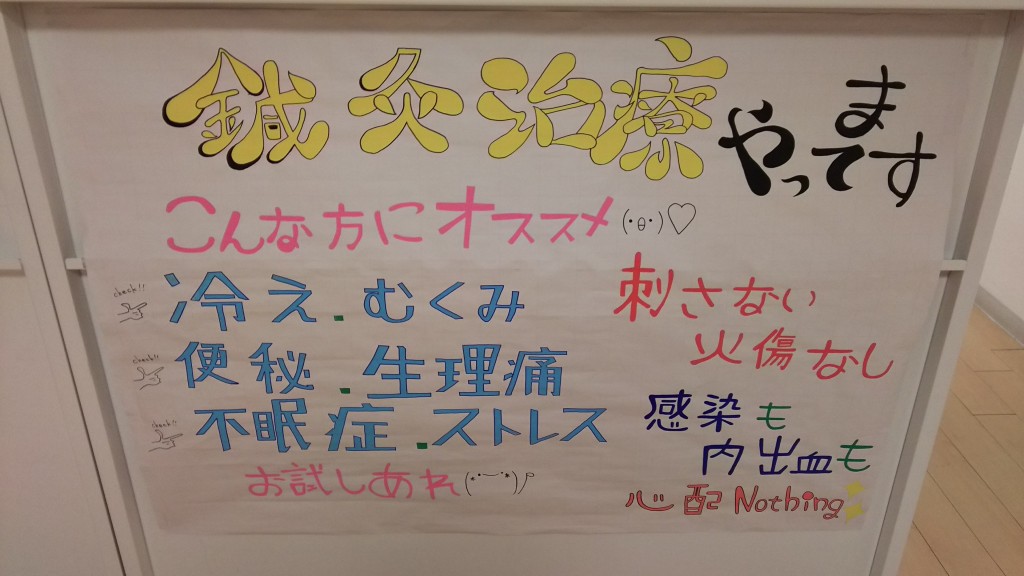 鍼灸治療やってます
こんな方にオススメ(・θ・)♡
check!! 冷え.むくみ
check!! 便秘.生理痛
check!! 不眠症.ストレス
お試しあれ(*^ー^*)ノ
刺さない
火傷なし
感染も
内出血も
心配Nothing